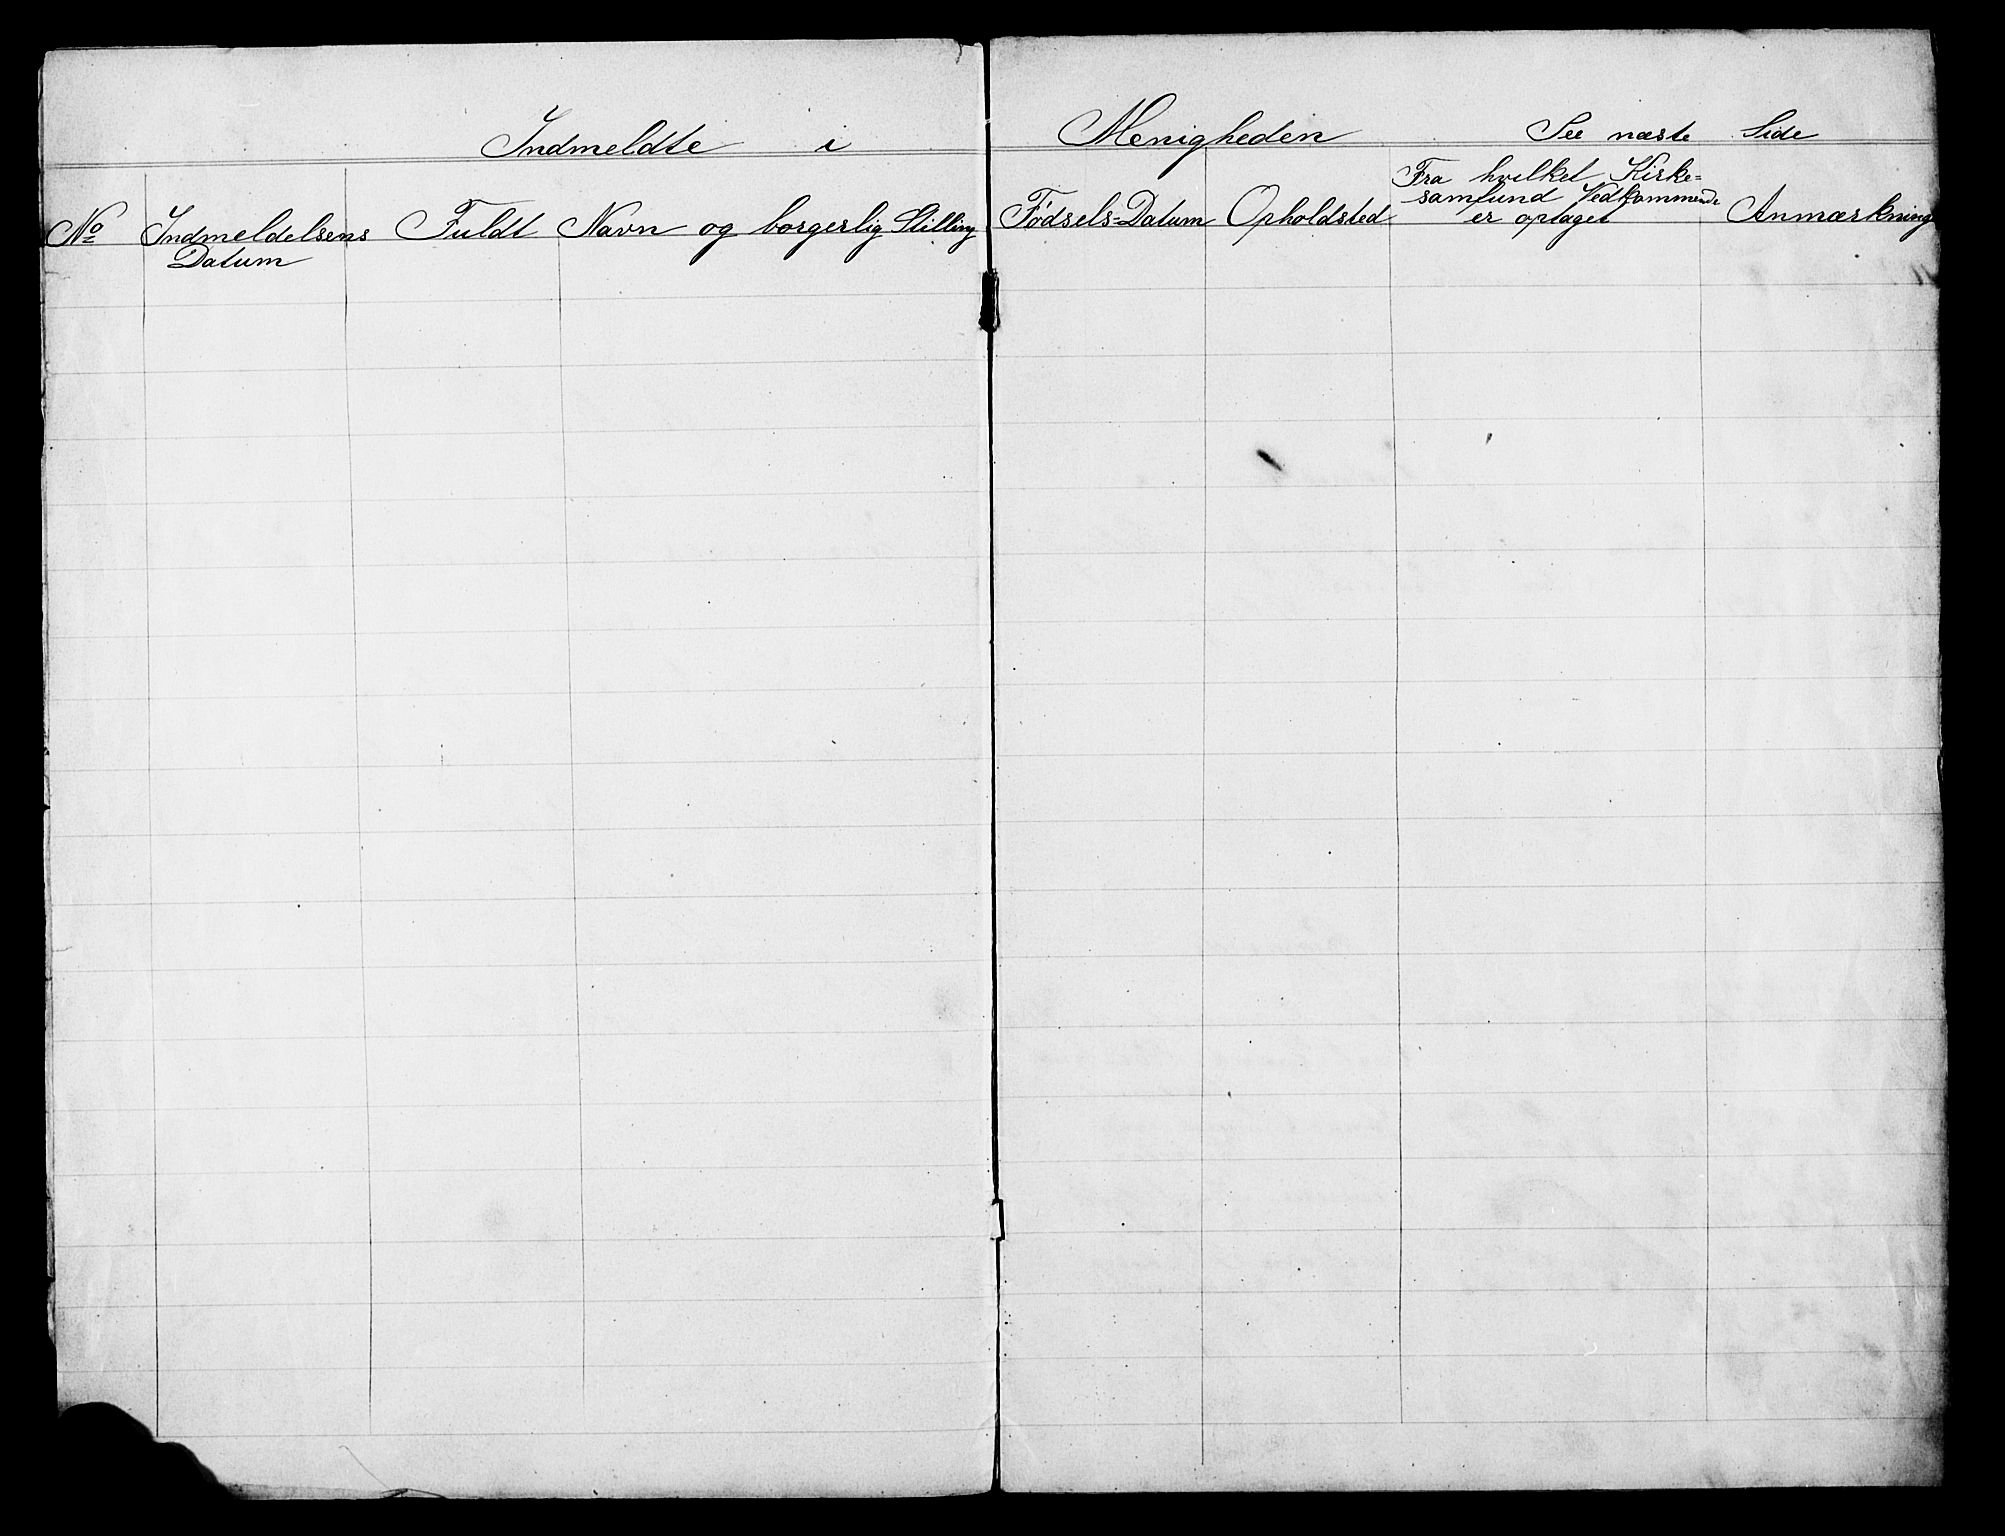 Indmeldte i Menigheden See næste Side
No Indmeldelsens Datum
Fuldt Navn og borgerlig Stilling
Fødsels-Datum
Opholdsted
Fra hvilket Kirke-
samfund Vedkommende
er optaget
Anmærkning